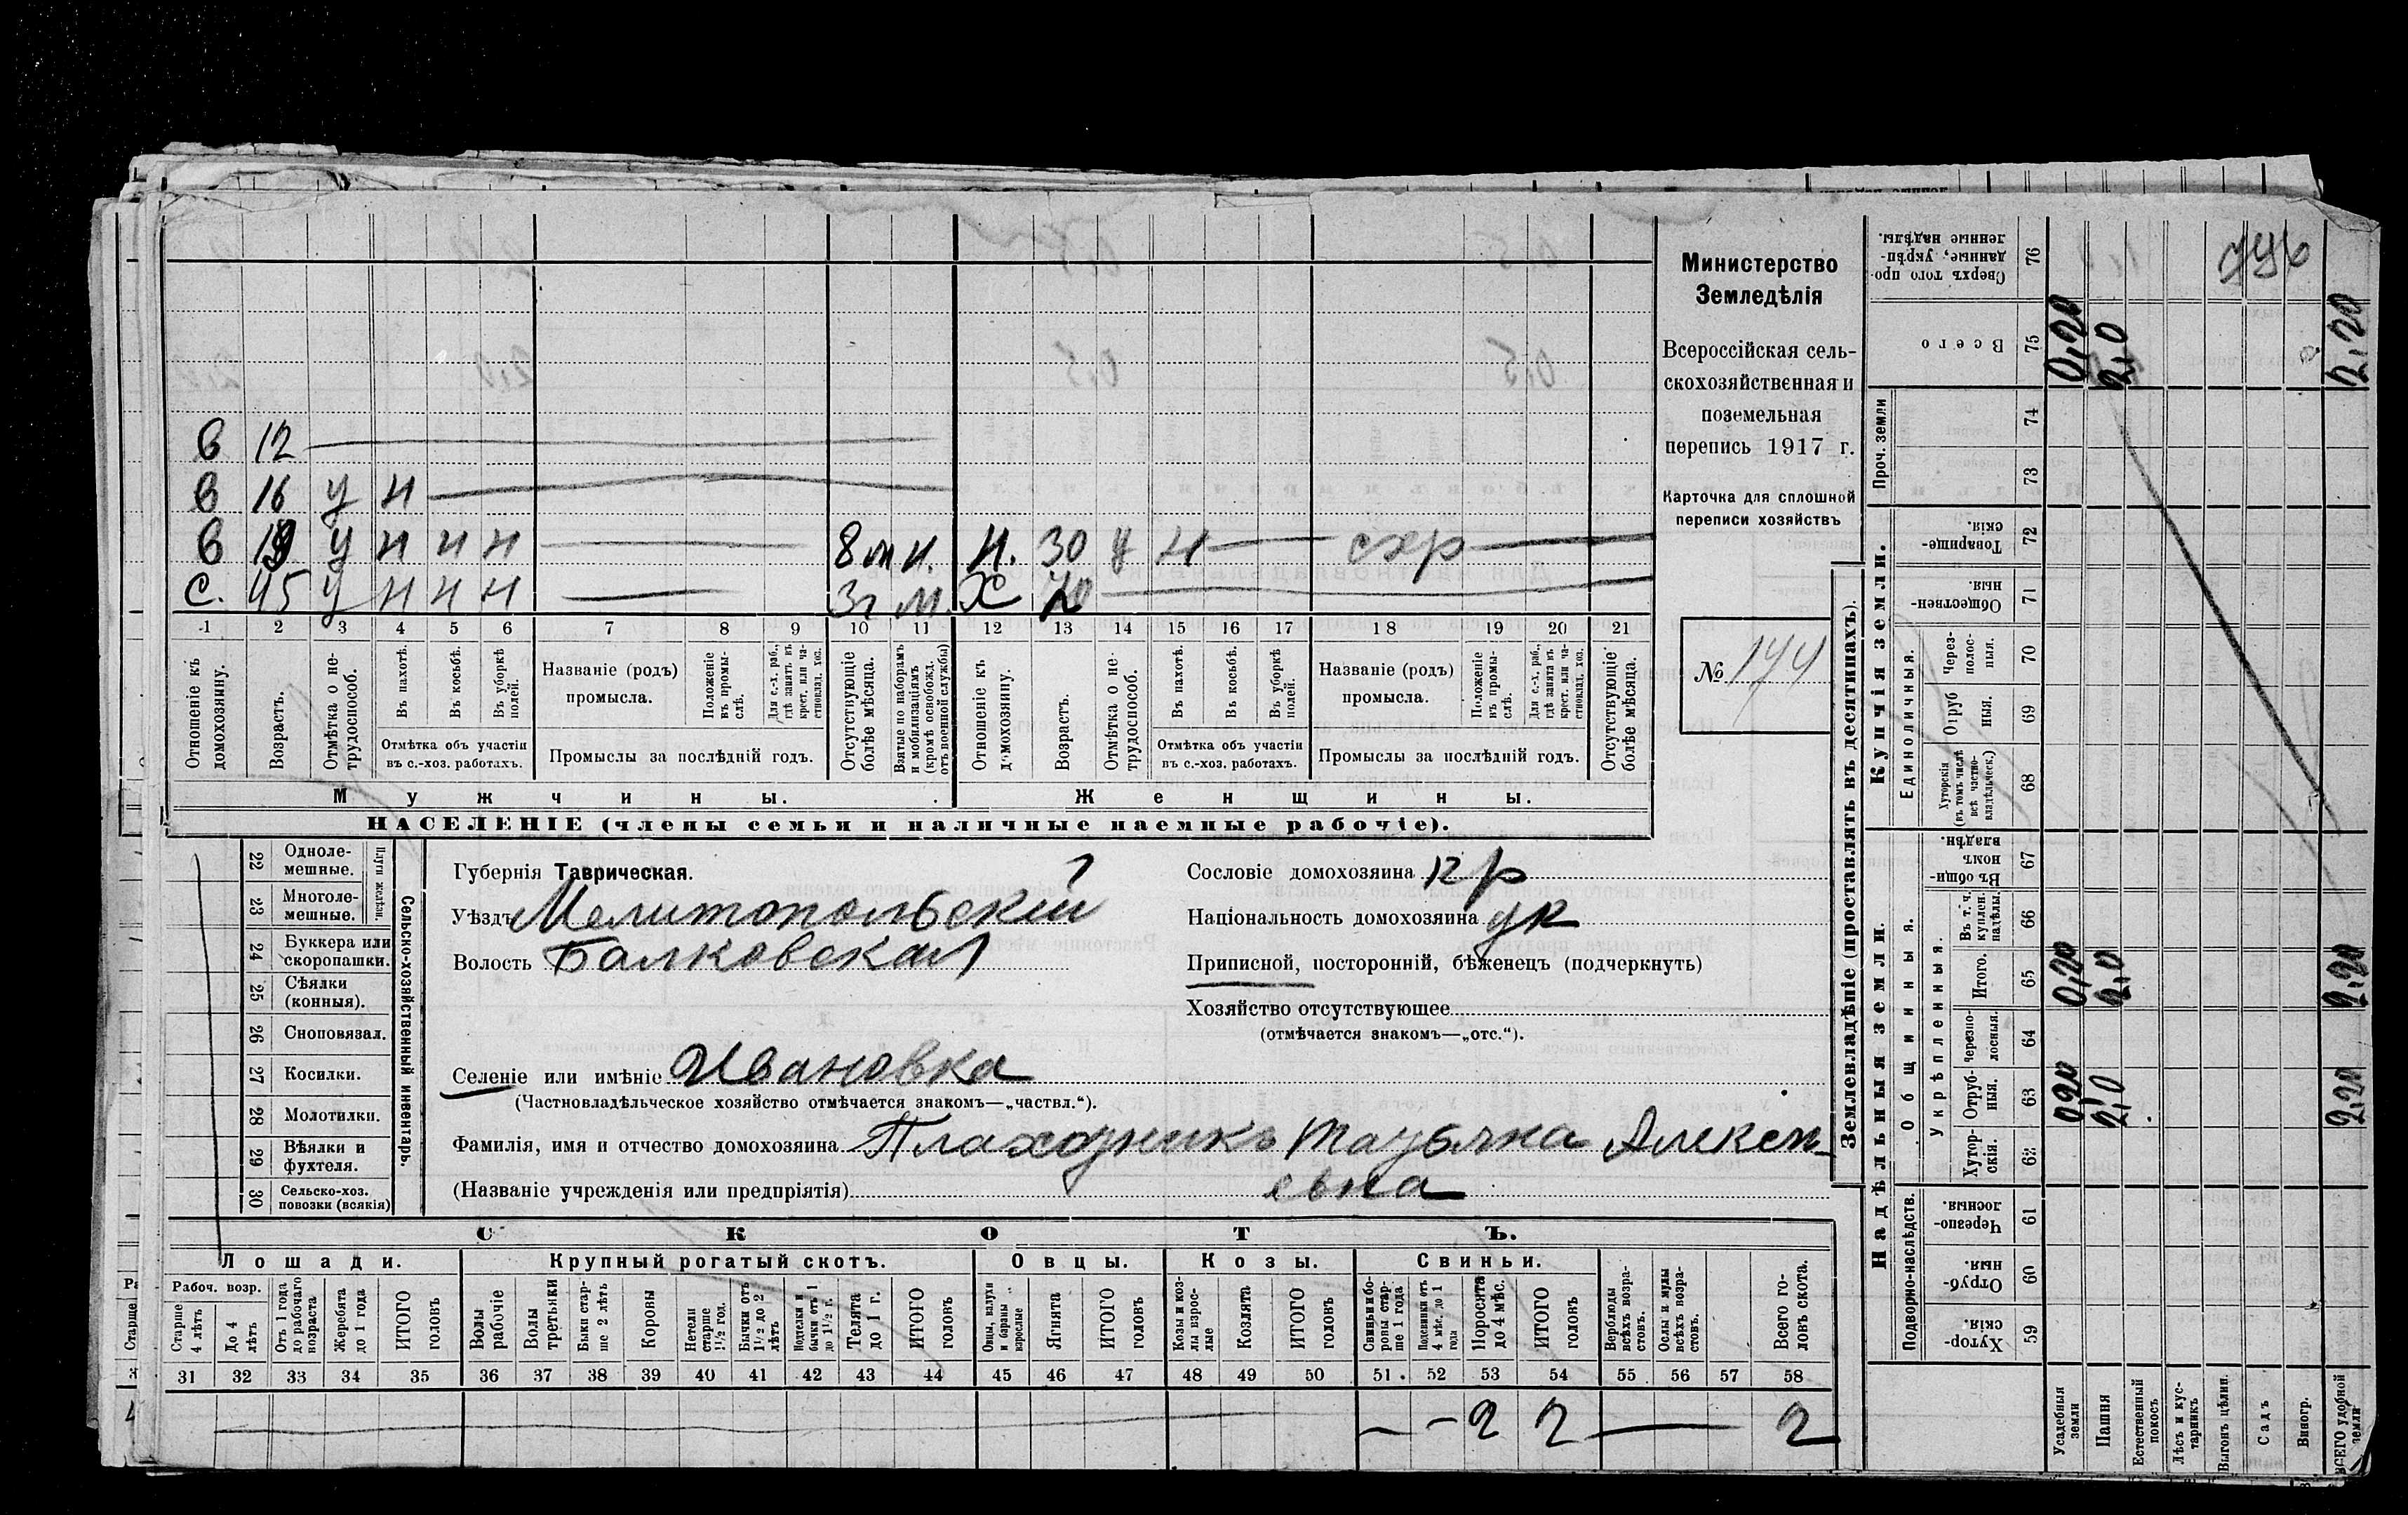 в 12
в 16 у н
в 19 у н н н 8 м н. Н. 30 у н схр
с. 45 у н н н 3г м. Х 70
1 2 3 4 5 6 7 8 9 10 11 12 13 14 15 16 17 18 19 20 21
Отношеніе къ домохозяину.
Возрастъ.
Отмѣтка о нетрудоспособ.
Въ пахотѣ.
Въ косьбѣ.
Въ уборкѣ полей.
Отмѣтка объ участіи
въ с.-хоз. работахъ.
Названіе (родъ)
промысла.
Положеніе въ промыслѣ.
Для с.-х. раб., гдѣ занятъ въ крест. или частновлад. хоз.
Промыслы за послѣдній годъ.
Отсутствующіе болѣе мѣсяца.
Взятые по наборамъ и мобилизаціямъ (кромѣ освобожд. отъ военной службы)
Отношеніе къ домохозяину.
Возрастъ.
Отмѣтка о нетрудоспособ.
Въ пахотѣ.
Въ косьбѣ.
Въ уборкѣ полей.
Отмѣтка объ участіи
въ с.-хоз. работахъ.
Названіе (родъ)
промысла.
Положеніе въ промыслѣ.
Для с.-х. раб., гдѣ занятъ въ крест. или частновлад. хоз.
Промыслы за послѣдній годъ.
Отсутствующіе болѣе мѣсяца.
Мужчины. Женщины.
НАСЕЛЕНІЕ (члены семьи и наличные наемные рабочіе).
Министерство
Земледѣлія
Всероссійская сель-
скохозяйственная и
поземельная
перепись 1917 г.
Карточка для сплошной
переписи хозяйствъ
№ 144
22 Одноле-
мешные.
23 Многоле-
мешные.
Плуги желѣзн.
24 Буккера или
скоропашки.
25 Сѣялки
(конныя).
26 Сноповязал.
27 Косилки.
28 Молотилки.
29 Вѣялки и
фухтеля.
30 Сельско-хоз.
повозки (всякія)
Сельско-хозяйственный инвентарь.
Губернія Таврическая.
Уѣздъ Мелитопольскій
Волость Балковская
Селеніе или имѣніе Ивановка
(Частновладѣльческое хозяйство отмѣчается знакомъ—„частвл.“).
Фамилія, имя и отчество домохозяина
Алексѣ-
(Названіе учрежденія или предпріятія)
евна
Сословіе домохозяина кр
Національность домохозяина ук
Приписной, посторонній, бѣженецъ (подчеркнуть)
Хозяйство отсутствующее
(отмѣчается знакомъ—„отс.“).
СКОТЪ.
Лошади. Крупный рогатый скотъ. Овцы. Козы. Свиньи.
Рабоч. возр.
Старше 4 лѣтъ
До 4 лѣтъ
Отъ 1 года до рабочаго возраста
Жеребята до 1 года
ИТОГО головъ
Волы рабочіе
Волы третьяки
Быки старше 2 лѣтъ
Коровы
Нетели старше 1½ год.
Бычки отъ 1½ до 2 лѣтъ
Подтелки и бычки отъ 1 до 1½ г.
Телята до 1 г.
ИТОГО головъ
Овцы, валухи и бараны взрослые
Ягнята
ИТОГО головъ
Козы и козлы взрослые
Козлята
ИТОГО головъ
Свиньи и боровы старше 1 года
Подсвинки отъ 4 мѣс. до 1 года
Поросята до 4 мѣс.
ИТОГО головъ
Верблюды всѣхъ возрастовъ.
Ослы и мулы всѣхъ возрастовъ.
Всего головъ скота.
31 32 33 34 35 36 37 38 39 40 41 42 43 44 45 46 47 48 49 50 51 52 53 54 55 56 57 58
2 2 2
Землевладѣніе (проставлять въ десятинахъ).
Сверхъ того проданные, укрѣпленные надѣлы. 76
Всего 75 0,20 2,0 2,20
Проч. земли 74
73
Купчія земли.
Товарищескія. 72
Общественныя. 71
Единоличныя.
Черезполосныя. 70
Отрубныя. 69
Хуторскія (въ томъ числѣ всѣ частновладѣльческ.) 68
Надѣльныя земли.
Общинныя.
Въ общинномъ владѣн. 67
Укрѣпленныя.
Въ т. ч. куплен. надѣлы. 66
Итого. 65 0,20 2,0 2,20
Черезполосныя. 64
Отрубныя. 63 0,20 2,0 2,20
Хуторскія. 62
Подворно-наслѣдств.
Черезполосныя. 61
Отрубныя. 60
Хуторскія. 59
Усадебныя земли
Пашня
Естественный покосъ
Лѣсъ и кустарникъ
Выгонъ цѣлин.
Садъ
Виногр.
ВСЕГО удобной земли